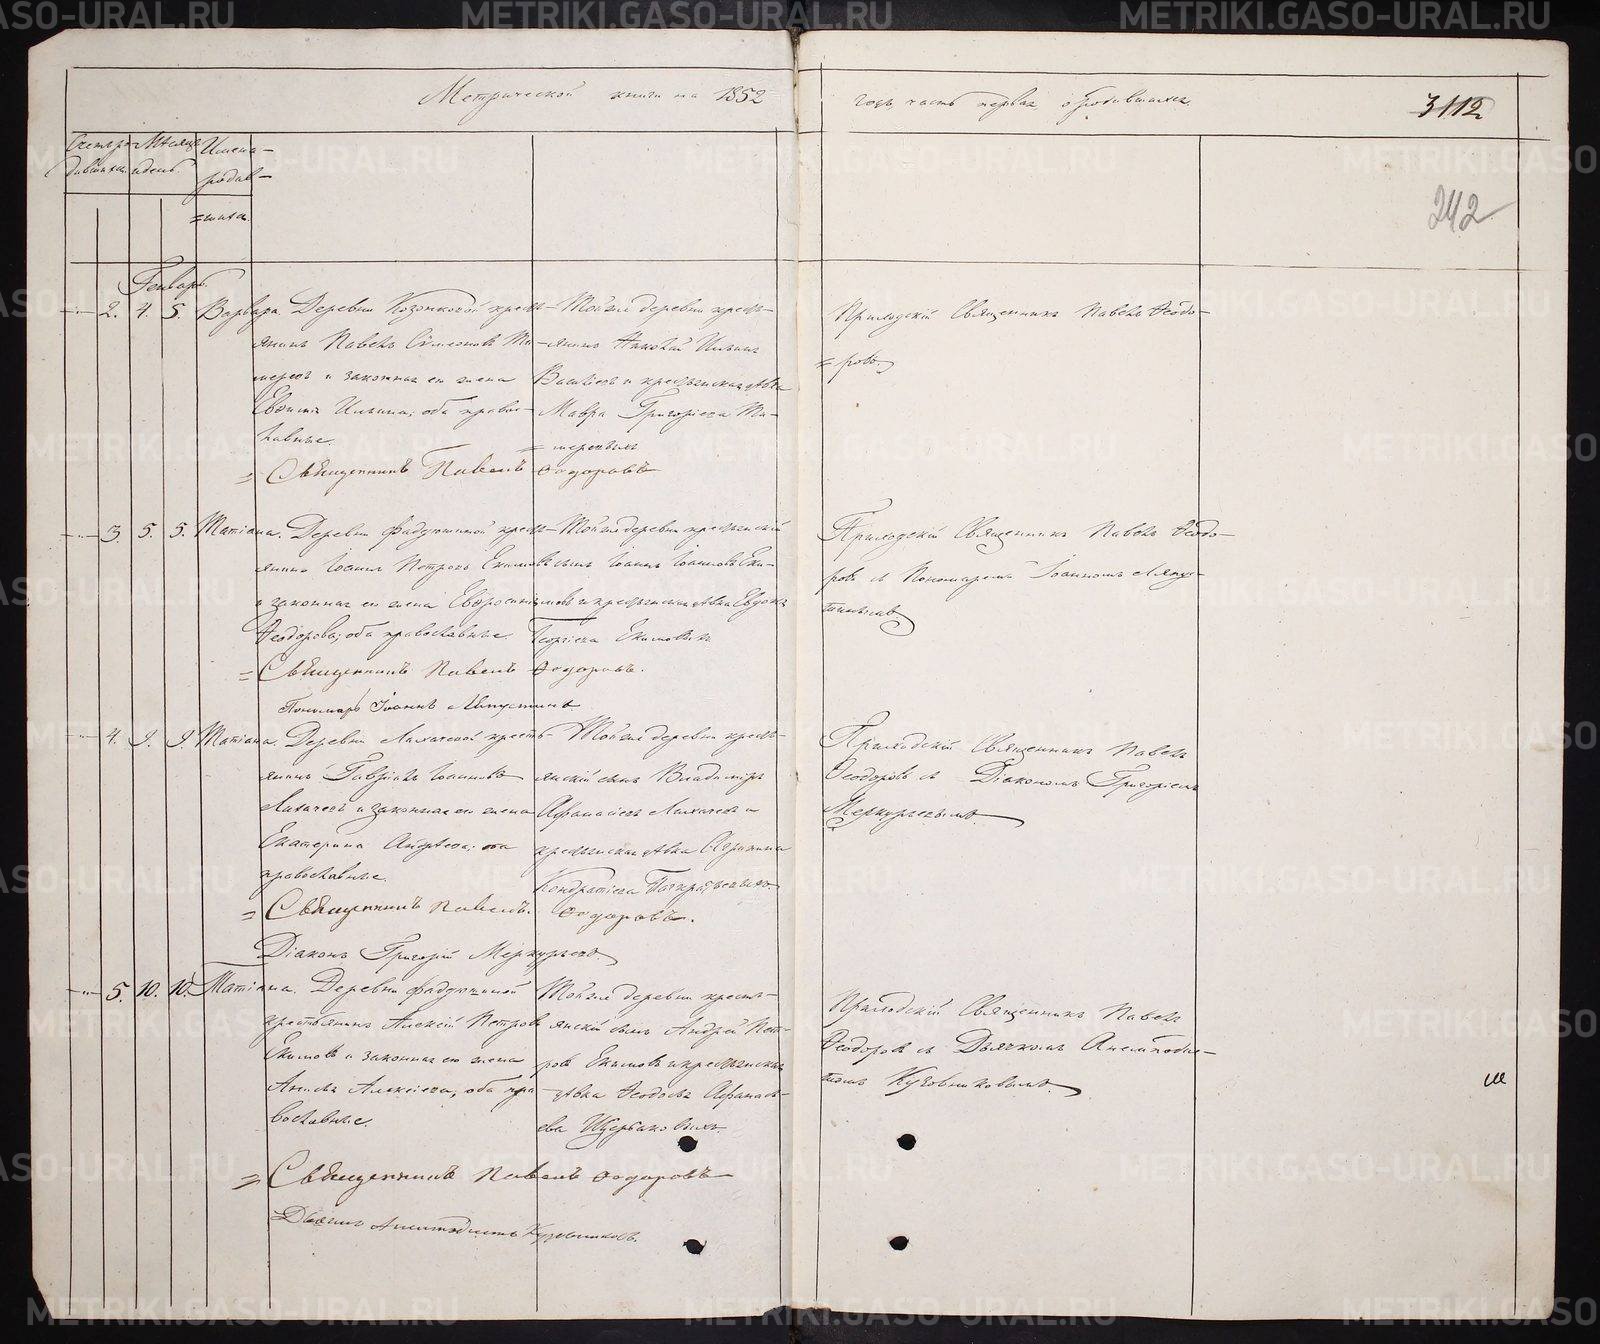 Метрической книги на 1852
годъ часть первая о родившихся.
3112
242
Счетъ ро-
дившихся.
Мѣсяцъ
и день.
Имена
родив-
=шихся.
Генварь.
2. 4. 5. Варвара. Деревни Козонковой кресть-
янинъ Павелъ Сѵмеоновъ
и законная его жена
Евѳимія Ильина; оба правос-
лавные.
Тойже деревни кресть-
янинъ Николай Ильинъ
и крестьянская дѣвка
Мавра Григорьева
Приходскій Священникъ Павелъ Ѳеодо-
=ровъ.
= Священникъ Павелъ Ѳеодоровъ
3. 5. 5. Татіана. Деревни Фадюшиной кресть-
янинъ Іоаннъ Петровъ Екимовъ
и законная его жена Евфросинія
Ѳеодорова; оба православные.
Тойже деревни крестьянскій
сынъ Іоаннъ Іоанновъ Еки-
мовъ и крестьянская дѣвка Евдокія
Георгіева Екимовыхъ.
Приходскій Священникъ Павелъ Ѳеодо-
ровъ съ Пономаремъ Іоанномъ Ляпус-
тинымъ
= Священникъ Павелъ Ѳеодоровъ.
Пономарь Іоаннъ Ляпустинъ
4. 9. 9. Татіана. Деревни Лихачевой кресть-
янинъ Гавріилъ Іоанновъ
Лихачевъ и законная его жена
Екатерина Андреева; оба
православные.
Тойже деревни кресть-
янскій сынъ Владиміръ
Афанасіевъ Лихачевъ и
крестьянская дѣвка
Кондратіева Панкратьевыхъ.
Приходскій Священникъ Павелъ
Ѳеодоровъ съ Діакономъ Григоріемъ
Меркурьевымъ
= Священникъ Павелъ Ѳеодоровъ.
Діаконъ Григорій Меркурьевъ
5. 10. 10. Татіана. Деревни Фадюшиной
крестьянинъ Алексій Петровъ
Екимовъ и законная его жена
Алексіева, оба пра-
вославные.
Тойже деревни кресть-
янскій сынъ Андрей Пет-
ровъ Екимовъ и крестьянская
дѣвка Ѳеодосья Афанась-
ева Щербаковыхъ.
Приходскій Священникъ Павелъ
Ѳеодоровъ съ Дьячкомъ Анемподис-
томъ Кузовниковымъ
= Священникъ Павелъ Ѳеодоровъ
Дьячекъ Анемподистъ Кузовниковъ.
METRIKI.GASO-URAL.RU